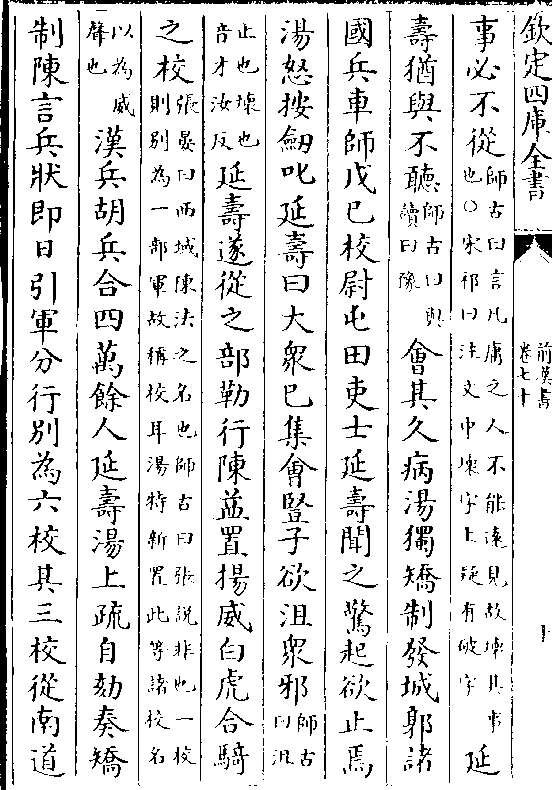 欽定四庫全書
前漢書
卷七十
十
事必不從師古曰言凡庸之人不能遠見故壞其事
也○宋祁曰注文中壞字上疑有破字延
壽猶與不聽師古曰與
讀曰豫會其久病湯獨矯制發城郭諸
國兵車師戊巳校尉屯田吏士延壽聞之驚起欲止焉
湯怒按劒叱延壽曰大衆已集會豎子欲沮衆邪師古
曰沮
止也壊也
音才汝反延壽遂從之部勒行陳益置揚威白虎合騎
之校張晏曰西域陳法之名也師古曰張説非也一校
則别為一部軍故稱校耳湯特新置此等諸校名
以為威
聲也漢兵胡兵合四萬餘人延壽湯上疏自劾奏矯
制陳言兵狀即日引軍分行别為六校其三校從南道